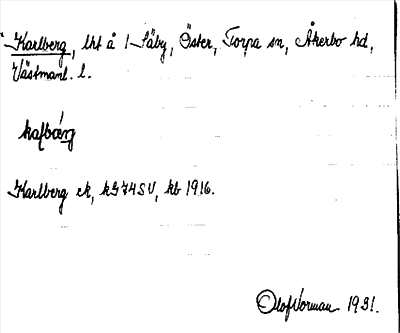 Karlberg, lht å 1 Säby, Öster, Torpa sn, Åkerbo hd,
Västmanl. l.
kaɭbárj
Karlberg ek, k374SV, kb 1916.
Olof Norman 1931.